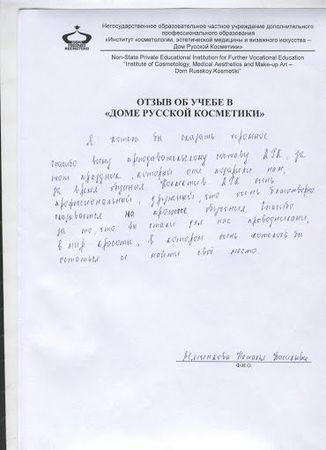 Негосударственное образовательное частное учреждение дополнительного
профессионального образования
«Институт косметологии, эстетической медицины и визажного искусства –
Дом Русской Косметики»
Non-State Private Educational Institution for Further Vocational Education
"Institute of Cosmetology, Medical Aesthetics and Make-up Art –
Dom Russkoy Kosmetiki"
ОТЗЫВ ОБ УЧЕБЕ В
«ДОМЕ РУССКОЙ КОСМЕТИКИ»
Я хотела бы сказать огромное
спасибо всему преподавательскому составу ДРК, за
тот праздник, который они подарили нам,
за время обучения. Коллектив ДРК очень
профессиональный, дружный, что очень благотворно
сказывается на процессе обучения. Спасибо
за то, что вы стали для нас проводниками,
в мир красоты, в котором очень хотелось бы
остаться и найти своё место.
Ф.И.О.